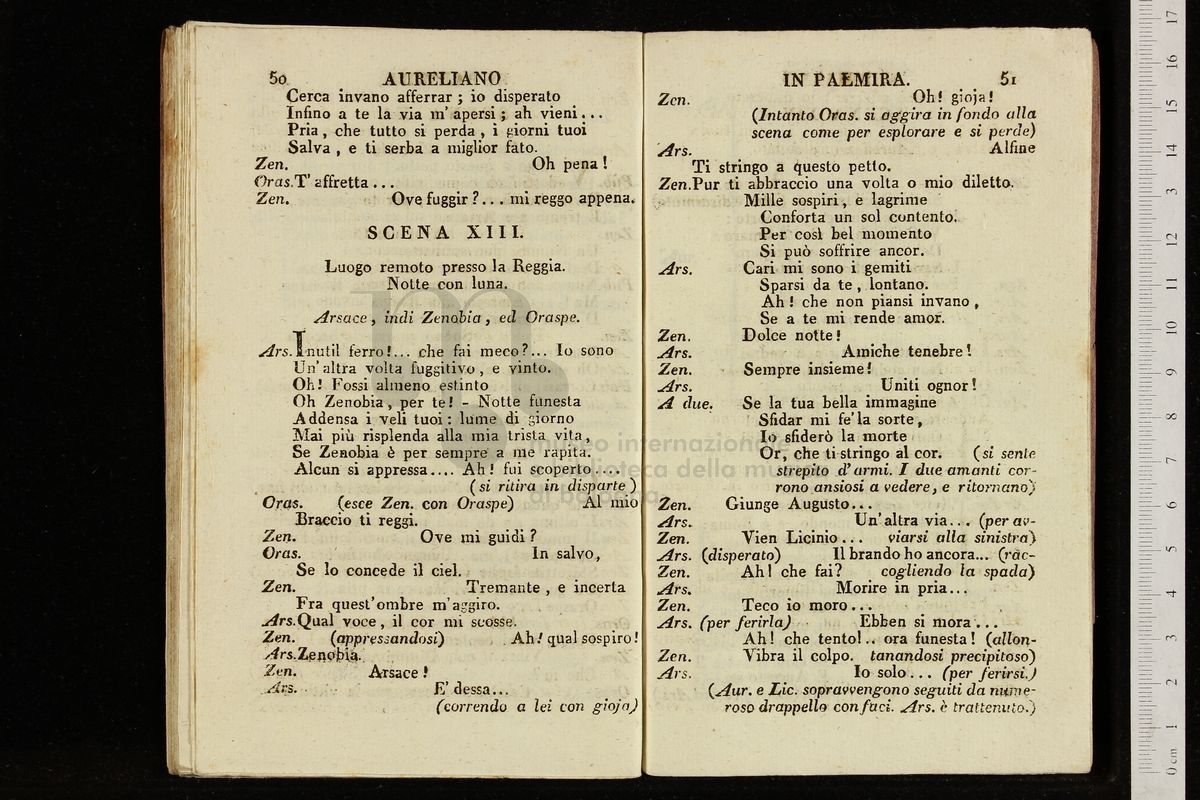 50 AURELIANO
Cerca invano afferrar ; io disperato
Infino a te la via m' apersi ; ah vieni...
Pria , che tutto si perda , i giorni tuoi
Salva , e ti serba a miglior fato.
Zen. Oh pena !
Oras. T' affretta ...
Zen. Ove fuggir ?... mi reggo appena.
SCENA XIII.
Luogo remoto presso la Reggia.
Notte con luna.
Arsace , indi Zenobia , ed Oraspe.
Ars. Inutil ferro !... che fai meco ?... Io sono
Un' altra volta fuggitivo , e vinto.
Oh! Fossi almeno estinto
Oh Zenobia , per te! - Notte funesta
Addensa i veli tuoi : lume di giorno
Mai più risplenda alla mia trista vita,
Se Zenobia è per sempre a me rapita.
Alcun si appressa.... Ah! fui scoperto ....
( si ritira in disparte )
Oras. (esce Zen. con Oraspe) Al mio
Braccio ti reggi.
Zen. Ove mi guidi ?
Oras. In salvo,
Se lo concede il ciel.
Zen. Tremante , e incerta
Fra quest' ombre m' aggiro.
Ars. Qual voce , il cor mi scosse.
Zen. (appressandosi) Ah! qual sospiro!
Ars. Zenobia.
Zen. Arsace !
Ars. E' dessa...
(correndo a lei con gioja)
IN PALMIRA. 51
Zen. Oh! gioja!
(Intanto Oras. si aggira in fondo alla
scena come per esplorare e si perde)
Ars. Alfine
Ti stringo a questo petto.
Zen. Pur ti abbraccio una volta o mio diletto.
Mille sospiri, e lagrime
Conforta un sol contento.
Per così bel momento
Si può soffrire ancor.
Ars. Cari mi sono i gemiti
Sparsi da te , lontano.
Ah ! che non piansi invano ,
Se a te mi rende amor.
Zen. Dolce notte!
Ars. Amiche tenebre!
Zen. Sempre insieme!
Ars. Uniti ognor!
A due. Se la tua bella immagine
Sfidar mi fe' la sorte,
Io sfiderò la morte
Or, che ti stringo al cor. (si sente
strepito d' armi. I due amanti cor-
rono ansiosi a vedere, e ritornano)
Zen. Giunge Augusto...
Ars. Un' altra via... (per av-
Zen. Vien Licinio ... viarsi alla sinistra)
Ars. (disperato) Il brando ho ancora... (rac-
Zen. Ah! che fai? cogliendo la spada)
Ars. Morire in pria...
Zen. Teco io moro...
Ars. (per ferirla) Ebben si mora ...
Ah! che tento!.. ora funesta! (allon-
Zen. Vibra il colpo. tanandosi precipitoso)
Ars. Io solo ... (per ferirsi.)
(Aur. e Lic. sopravvengono seguiti da nume-
roso drappello con faci. Ars. è trattenuto.)
museo internazionale
biblioteca della musica
di bologna
0 cm 1 2 3 4 5 6 7 8 9 10 11 12 13 14 15 16 17